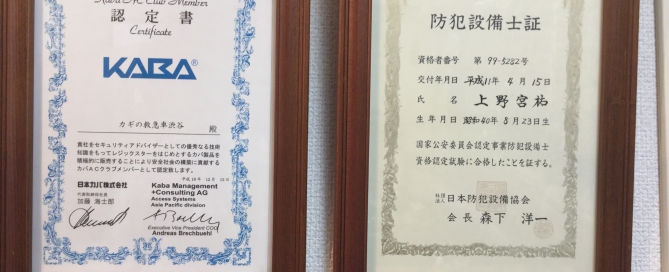 Kaba A.C Club Member
認定書
Certificate
KABA®
カギの救急車渋谷 殿
貴社をセキュリティアドバイザーとしての優秀なる技術
知識をもってレジックスターをはじめとするカバ製品を
積極的に販売することにより安全社会の構築に貢献する
カバACクラブメンバーとして認定致します。
平成16年12月15日
日本カバ株式会社
代表取締役社長
加藤 海士郎
Kaba Management
+Consulting AG
Access Systems
Asia Pacific division
Executive Vice President COO
Andreas Brechbuehl
防犯設備士証
資格者番号 第 99-5282号
交付年月日 平成11年 4月 15日
氏名 上野宮祐
生年月日 昭和40年 8月23日生
国家公安委員会認定事業防犯設備士
資格認定試験に合格したことを証する。
社団法人 日本防犯設備協会
会長 森下 洋一